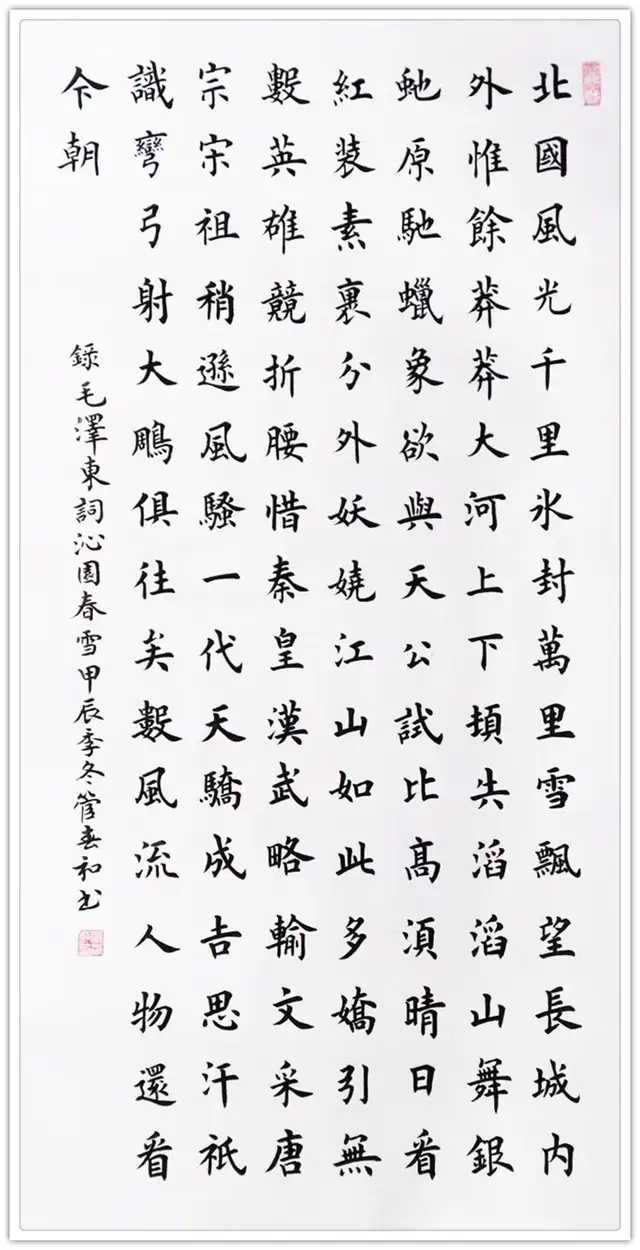 北國風光千里氷封萬里雪飄望長城内
外惟餘莽莽大河上下頓失滔滔山舞銀
虵原馳蠟象欲與天公試比高須晴日看
紅装素裹分外妖嬈江山如此多嬌引無
數英雄競折腰惜秦皇漢武略輸文采唐
宗宋祖稍遜風騷一代天驕成吉思汗祇
識彎弓射大鵰俱往矣數風流人物還看
今朝
録毛澤東詞沁園春雪甲辰季冬管春和书